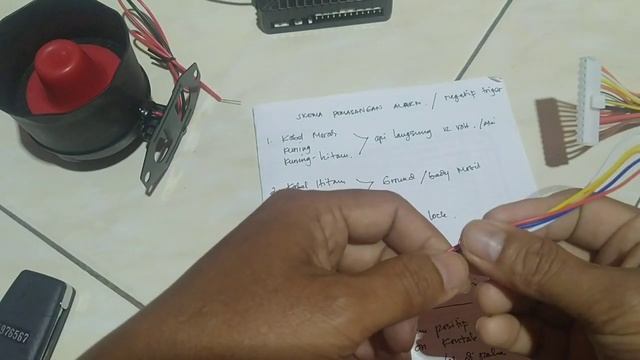 SKEMA PEMASANGAN ALARM. / negatip triger
1. Kabel Merah
kuning
kuning-hitam.
> api langsung 12 volt. /Aki
2. Kabel Hitam > Ground / body Mobil
lock.
positip
Kontak
di
976567